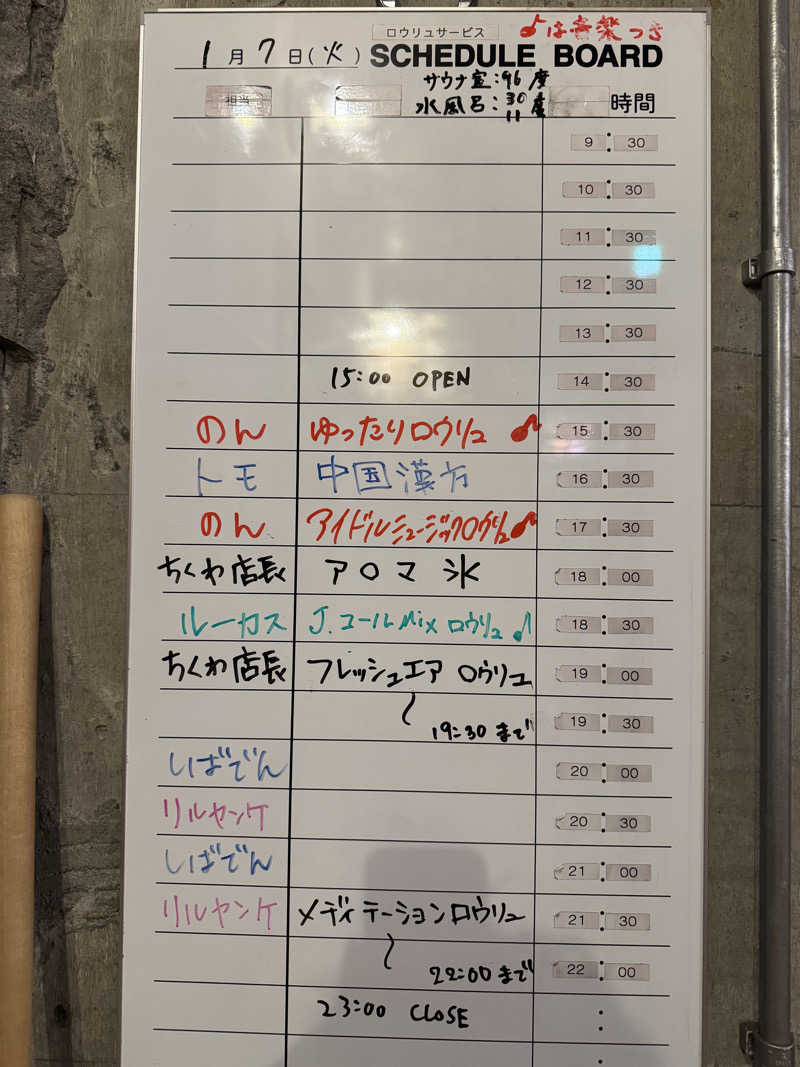 ロウリュサービス ♪は音楽つき
1月7日(火) SCHEDULE BOARD
サウナ室:96度
水風呂:30度
11
担当 時間
9:30
10:30
11:30
12:30
13:30
15:00 OPEN 14:30
のん ゆったりロウリュ♪ 15:30
トモ 中国漢方 16:30
のん アイドルミュージックロウリュ♪ 17:30
ちくわ店長 アロマ氷 18:00
ルーカス J.コールMixロウリュ♪ 18:30
ちくわ店長 フレッシュエアロウリュ 19:00
〜19:30まで 19:30
しばでん 20:00
リルヤンケ 20:30
しばでん 21:00
リルヤンケ メディテーションロウリュ 21:30
〜22:00まで 22:00
23:00 CLOSE :
: